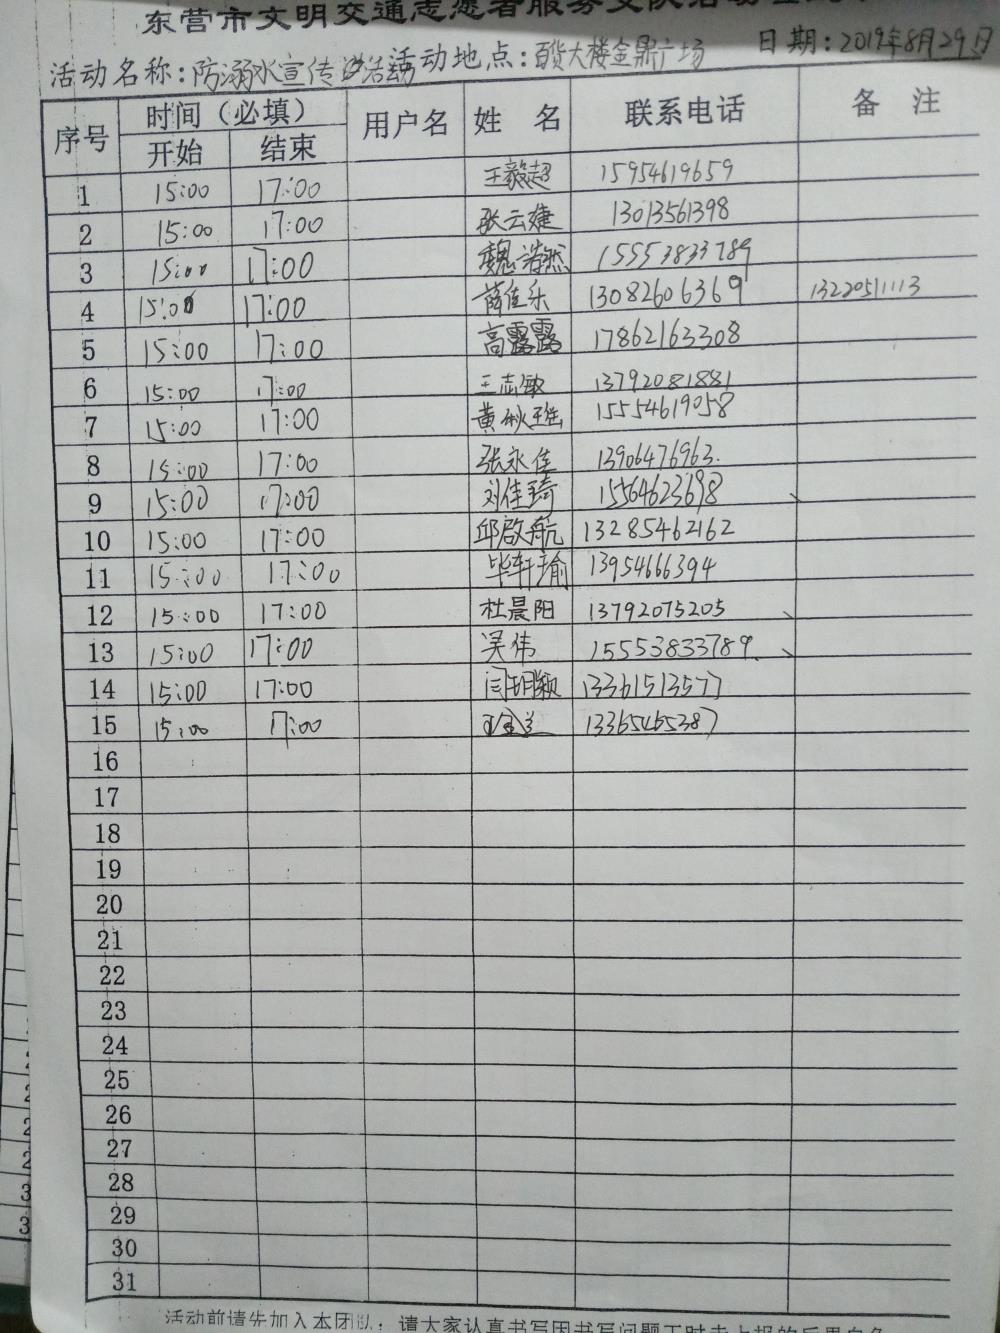 东营市文明交通志愿者服务支队活动
活动名称：防溺水宣传 活动地点：百货大楼金鼎广场 日期：2019年8月29日
序号 时间（必填） 用户名 姓 名 联系电话 备 注
开始 结束
1 15:00 17:00 王毅超 15954619659
2 15:00 17:00 张云婕 13013561398
3 15:00 17:00 魏浩然 15553833789
4 15:00 17:00 薛佳乐 13082606369 13220511113
5 15:00 17:00 高露露 17862163308
6 15:00 17:00 王志敏 13792081881
7 15:00 17:00 黄秋瑶 15554619058
8 15:00 17:00 张永佳 13906476963.
9 15:00 17:00 刘佳琦 15564623698
10 15:00 17:00 邱啟航 13285462162
11 15:00 17:00 毕轩瑜 13954666394
12 15:00 17:00 杜晨阳 13792075205
13 15:00 17:00 吴伟 15553833789.
14 15:00 17:00 闫玥颖 13361513577
15 15:00 17:00 13365465387
16
17
18
19
20
21
22
23
24
25
26
27
28
29
30
31
活动前请先加入本团队；请大家认真书写因书写问题工时未上报的后果自负